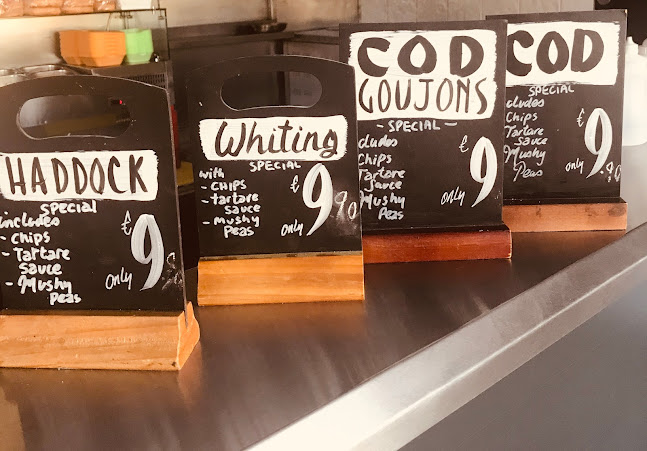 HADDOCK
SPECIAL
includes
- Chips
- Tartare
Sauce
- Mushy
Peas
only
€9
Whiting
SPECIAL
with
- CHIPS
- tartare
sauce
- mushy
Peas
only
€9.90
COD
GOUJONS
- SPECIAL -
cludes
Chips
Tartare
Sauce
Mushy
Peas
only
€9
COD
SPECIAL
cludes
Chips
Tartare
Sauce
Mushy
Peas
only
€9.90